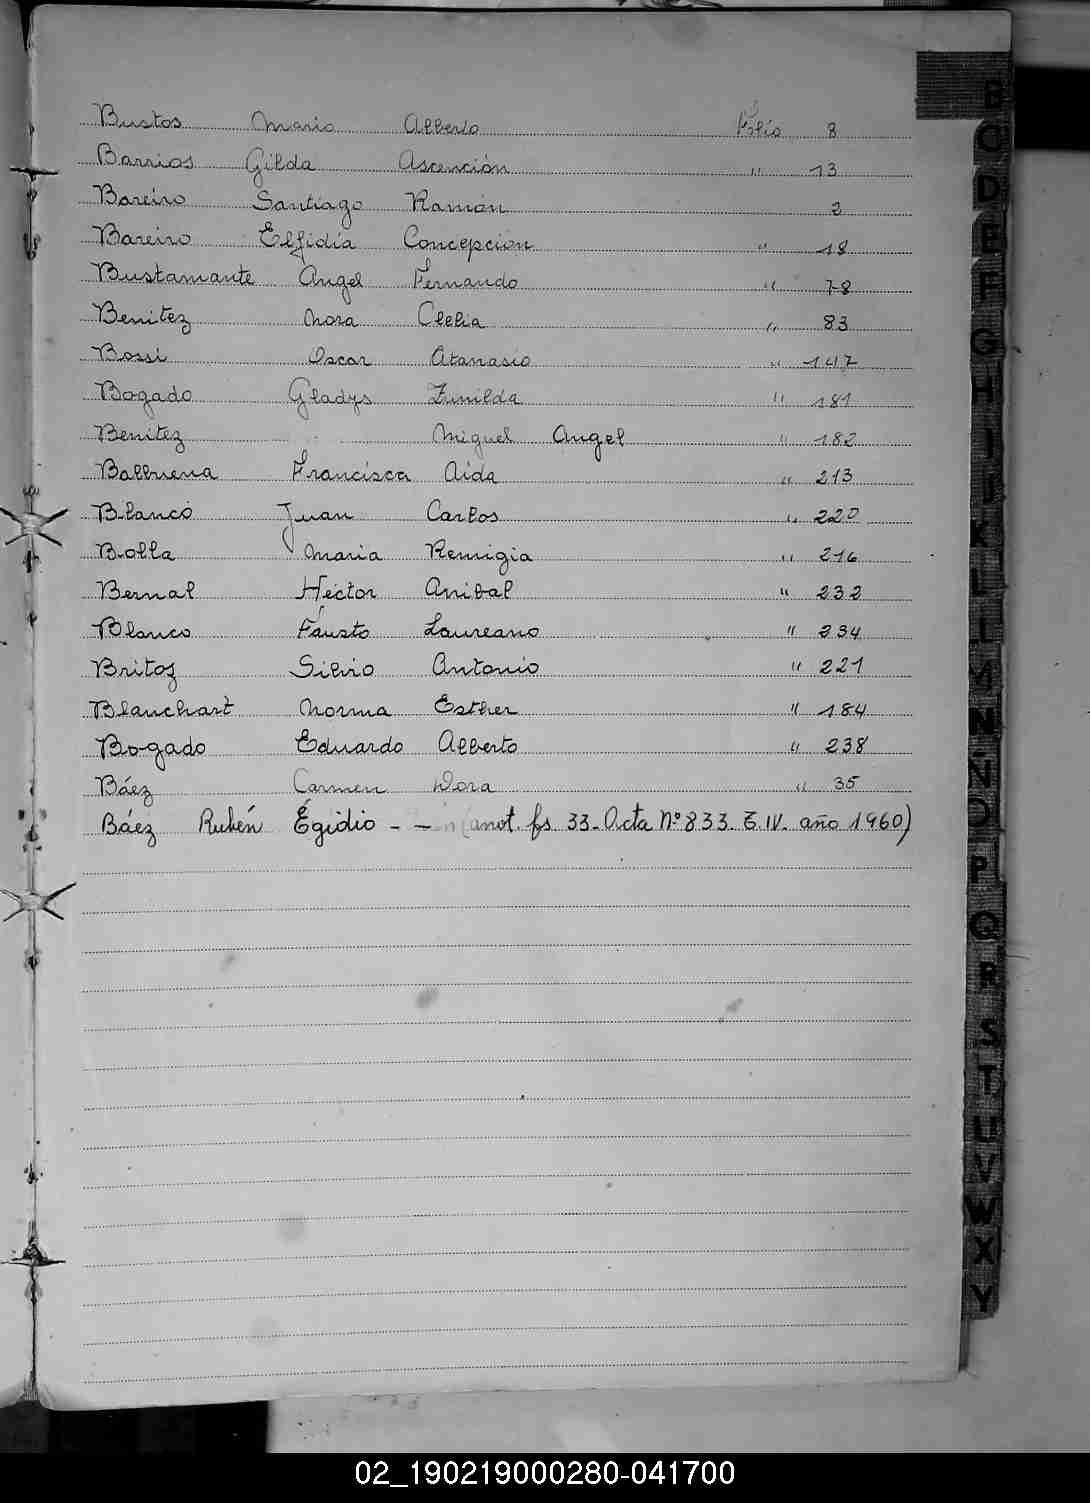 Bustos Mario Alberto Folio 8
Barrios Gilda Ascención " 13
Bareiro Santiago Ramón 2
Bareiro Elfidia Concepción " 18
Bustamante Angel Fernando " 78
Benitez Nora Clelia " 83
Bossi Oscar Atanasio " 147
Bogado Gladys Zunilda " 181
Benitez Miguel Angel " 182
Balbuena Francisca Aida " 213
Blanco Juan Carlos " 220
Bolla Maria Remigia " 216
Bernal Héctor Anibal " 232
Blanco Fausto Laureano " 234
Britos Silvio Antonio " 221
Blanchart Norma Esther " 184
Bogado Eduardo Alberto " 238
Báez Carmen Dora " 35
Báez Rubén Égidio - - (anot. fs 33- Acta Nº 833. T. IV. año 1960)
B
C
D
E
F
G
H
I
J
K
L
M
N
Ñ
O
P
Q
R
S
T
U
V
W
X
Y
02_190219000280-041700